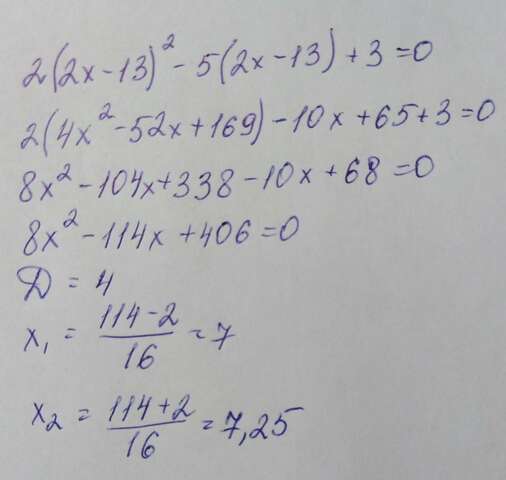 2(2x-13)² - 5(2x-13) + 3 = 0
2(4x² - 52x + 169) - 10x + 65 + 3 = 0
8x² - 104x + 338 - 10x + 68 = 0
8x² - 114x + 406 = 0
D = 4
x₁ = (114-2)/16 = 7
x₂ = (114+2)/16 = 7,25